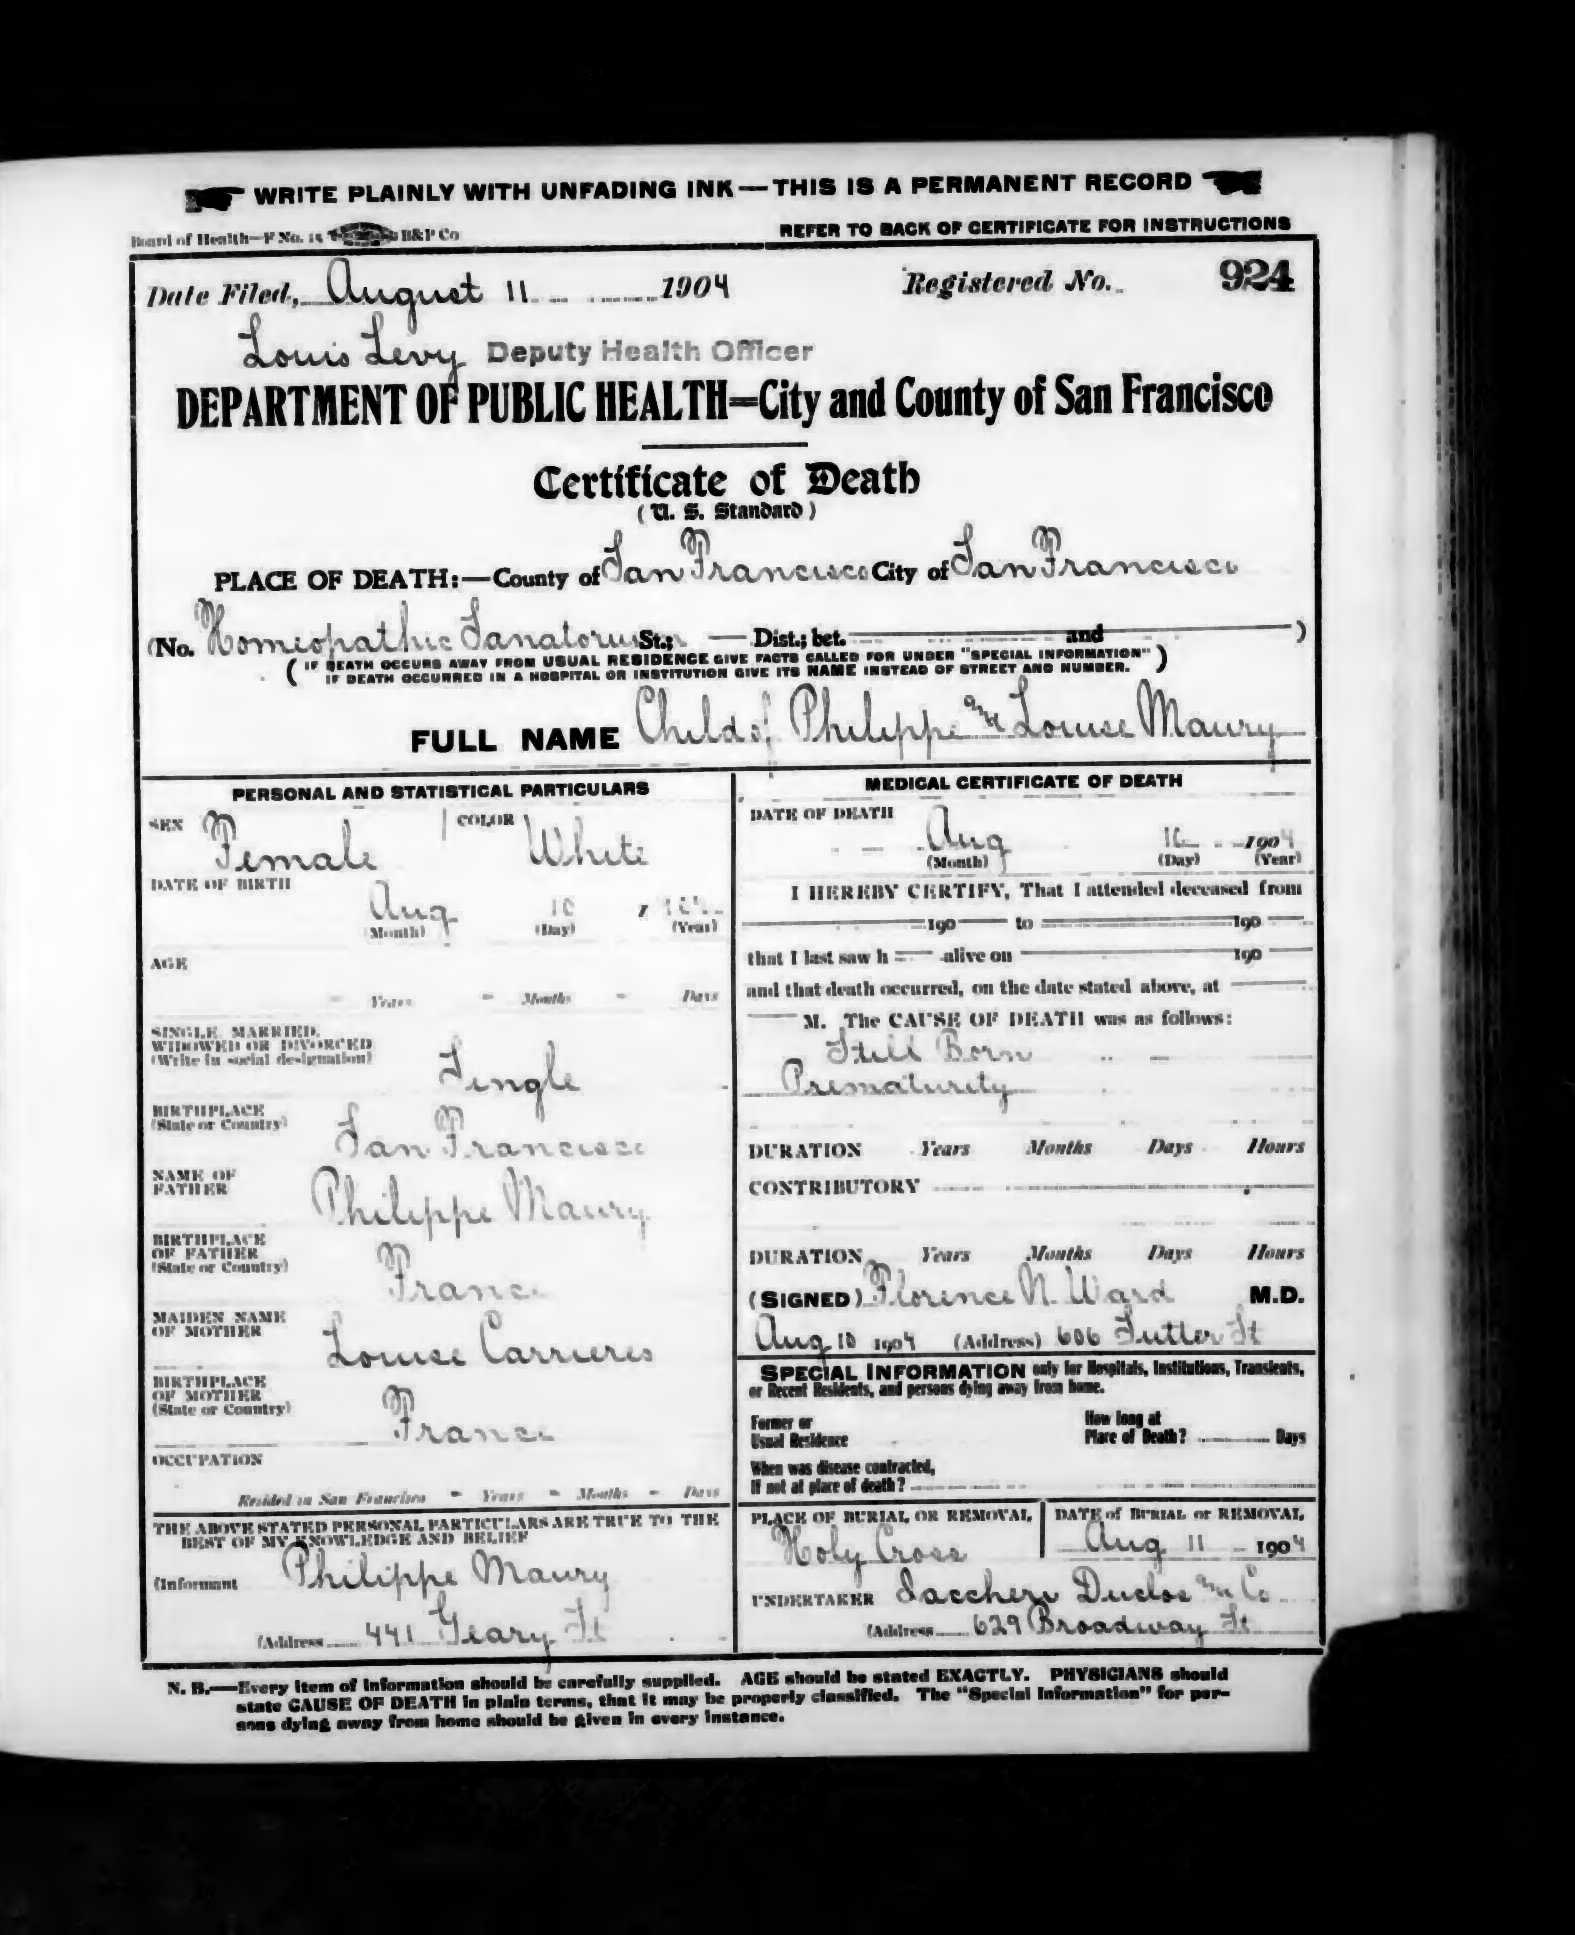 WRITE PLAINLY WITH UNFADING INK—THIS IS A PERMANENT RECORD
Board of Health—F No. 15 B&P Co
REFER TO BACK OF CERTIFICATE FOR INSTRUCTIONS
Date Filed, August 11 1904 Registered No. 924
Louis Levy Deputy Health Officer
DEPARTMENT OF PUBLIC HEALTH=City and County of San Francisco
Certificate of Death
(U. S. Standard)
PLACE OF DEATH:—County of San Francisco City of San Francisco
(No. Homeopathic Sanatorium St.; — Dist.; bet. and )
(IF DEATH OCCURS AWAY FROM USUAL RESIDENCE GIVE FACTS CALLED FOR UNDER "SPECIAL INFORMATION"
IF DEATH OCCURRED IN A HOSPITAL OR INSTITUTION GIVE ITS NAME INSTEAD OF STREET AND NUMBER.)
FULL NAME Child of Philippe and Louise Maury
PERSONAL AND STATISTICAL PARTICULARS
SEX Female COLOR White
DATE OF BIRTH
Aug 10 1904
(Month) (Day) (Year)
AGE
- Years - Months - Days
SINGLE, MARRIED,
WIDOWED OR DIVORCED
(Write in social designation)
Single
BIRTHPLACE
(State or Country)
San Francisco
NAME OF
FATHER
Philippe Maury
BIRTHPLACE
OF FATHER
(State or Country)
France
MAIDEN NAME
OF MOTHER
Louise Carrieres
BIRTHPLACE
OF MOTHER
(State or Country)
France
OCCUPATION
Resided in San Francisco - Years - Months - Days
THE ABOVE STATED PERSONAL PARTICULARS ARE TRUE TO THE
BEST OF MY KNOWLEDGE AND BELIEF
(Informant Philippe Maury
(Address 441 Geary St
MEDICAL CERTIFICATE OF DEATH
DATE OF DEATH
Aug 10 1904
(Month) (Day) (Year)
I HEREBY CERTIFY, That I attended deceased from
190 to 190
that I last saw h alive on 190
and that death occurred, on the date stated above, at
M. The CAUSE OF DEATH was as follows:
Still Born
Prematurity
DURATION Years Months Days Hours
CONTRIBUTORY
DURATION Years Months Days Hours
(SIGNED) Florence N. Ward M.D.
Aug 10 1904 (Address) 606 Sutter St
SPECIAL INFORMATION only for Hospitals, Institutions, Transients,
or Recent Residents, and persons dying away from home.
Former or
Usual Residence
How long at
Place of Death? Days
When was disease contracted,
If not at place of death?
PLACE OF BURIAL OR REMOVAL
Holy Cross
DATE of BURIAL or REMOVAL
Aug 11 1904
UNDERTAKER Iaccheri Duclos and Co
(Address 629 Broadway St
N. B.—Every item of information should be carefully supplied. AGE should be stated EXACTLY. PHYSICIANS should
state CAUSE OF DEATH in plain terms, that it may be properly classified. The "Special Information" for per-
sons dying away from home should be given in every instance.